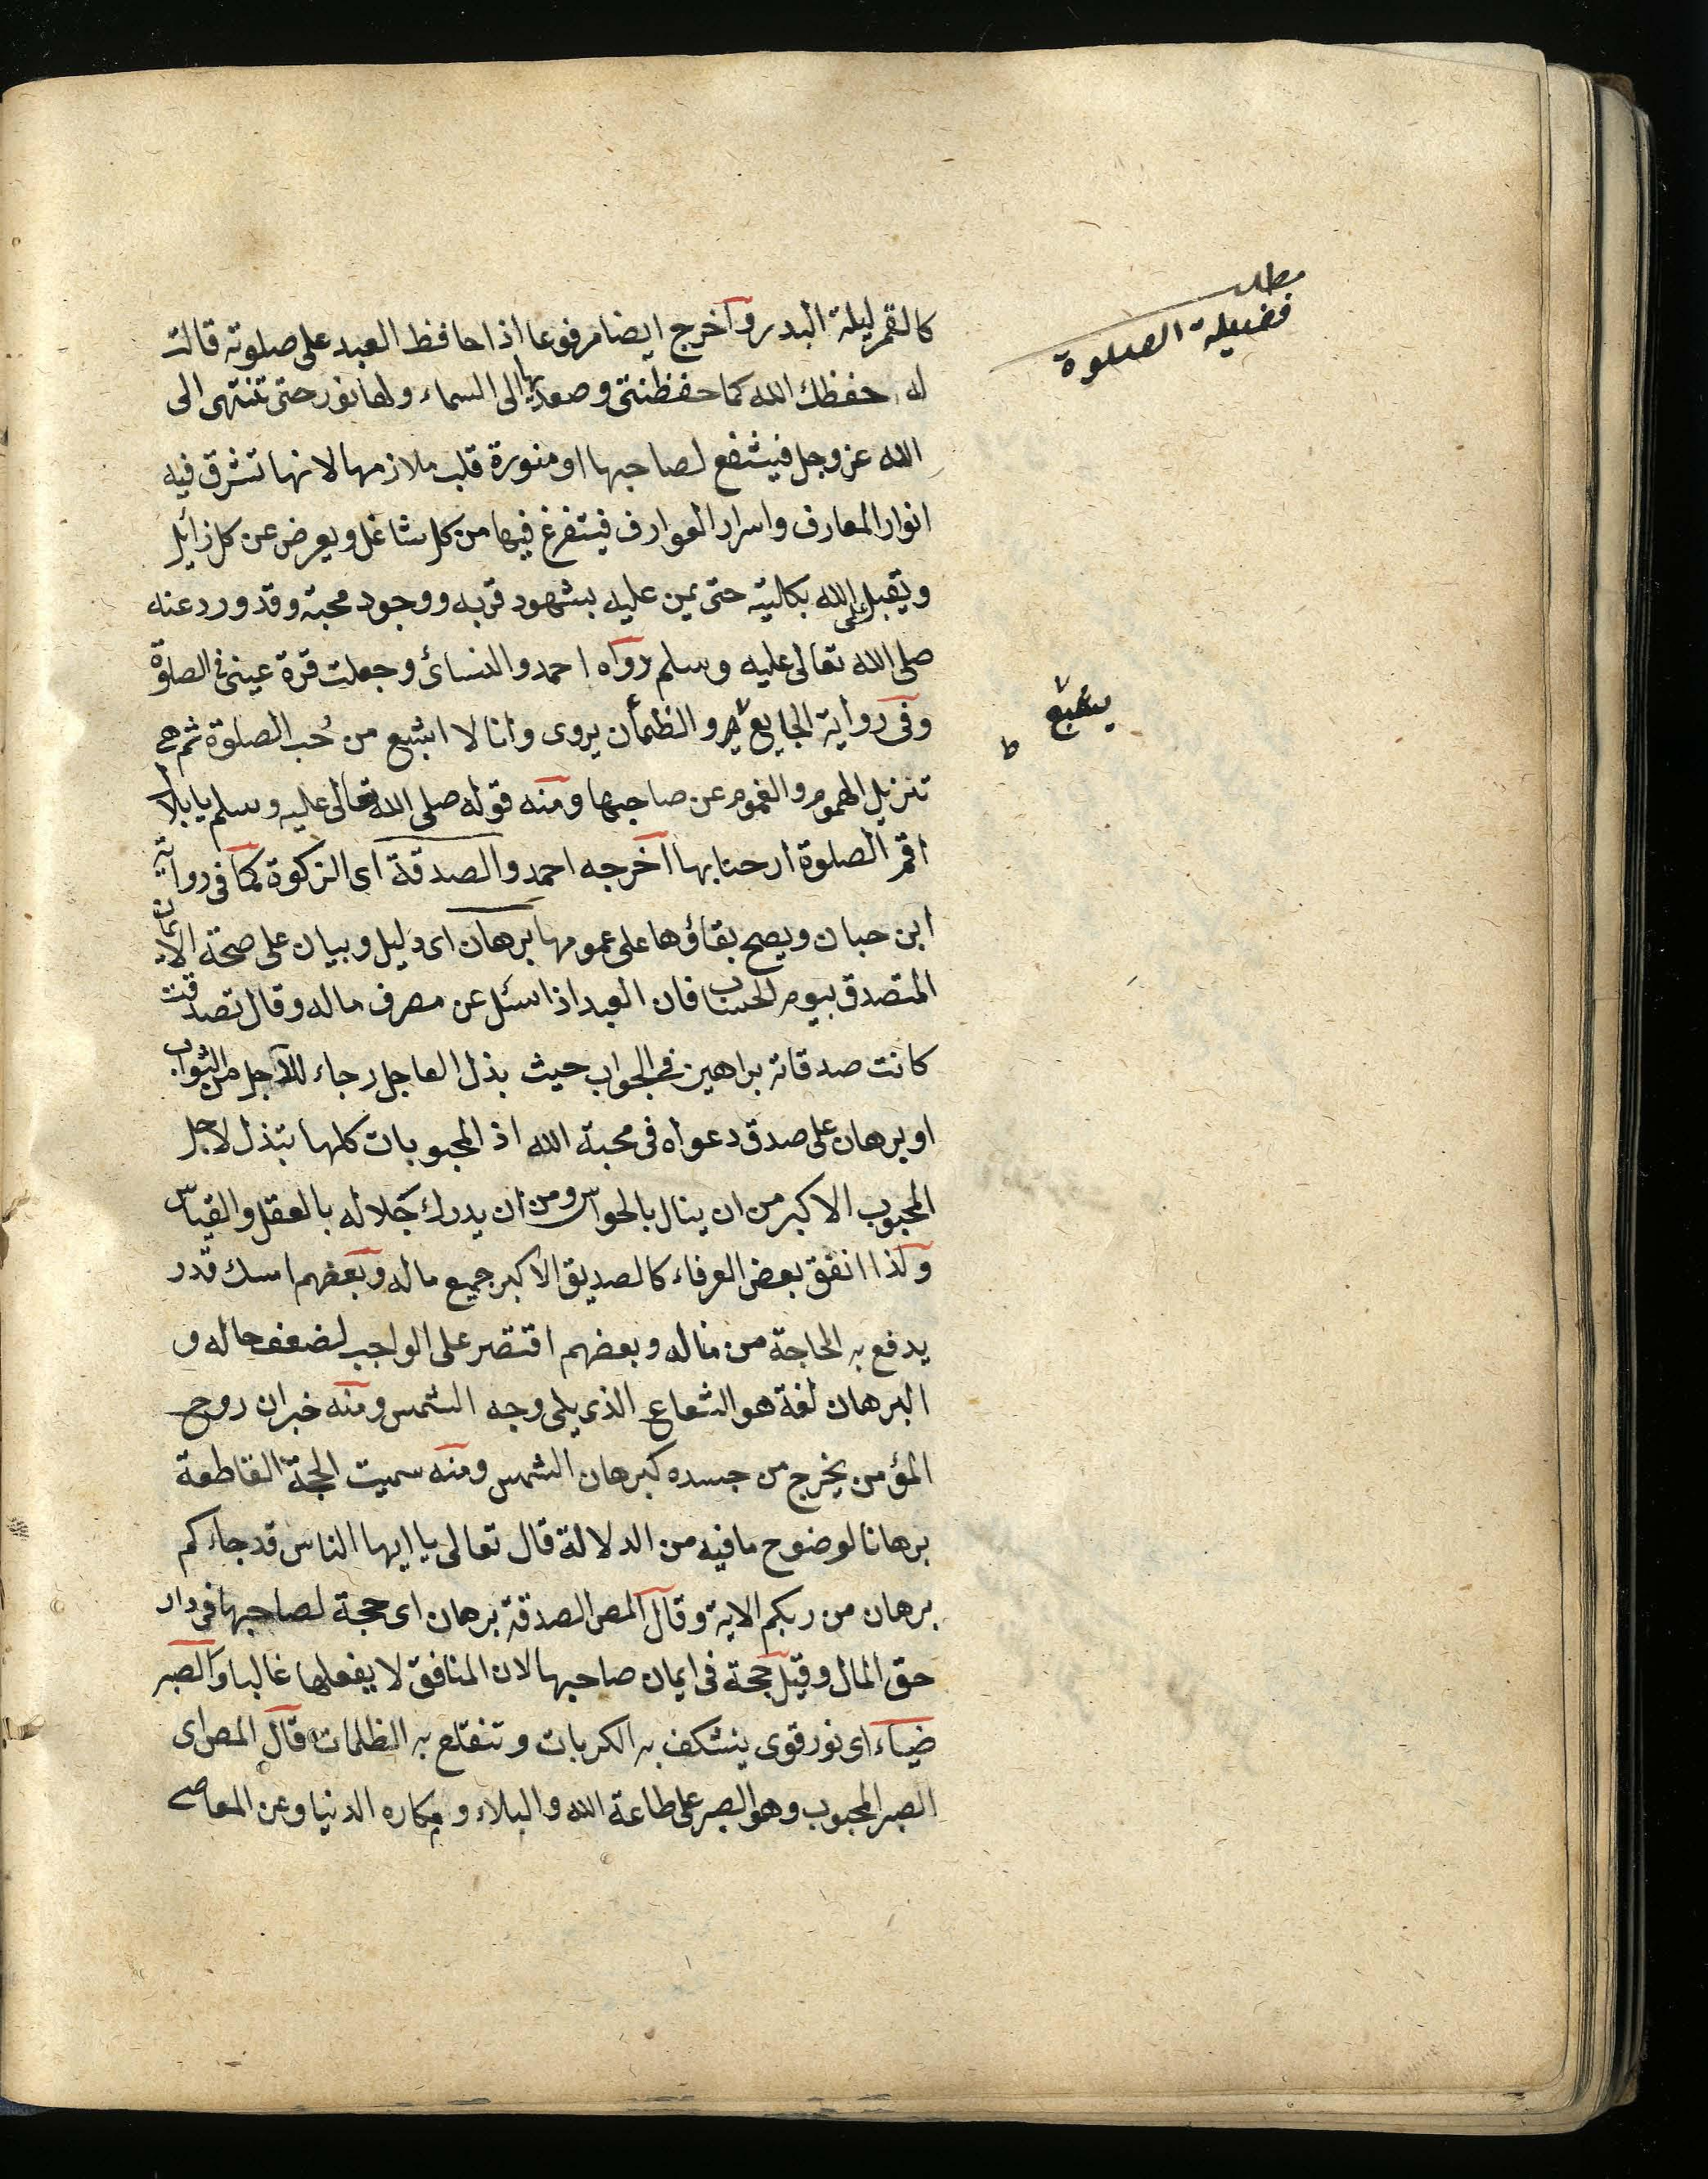 مطلب
فضيلة الصلوة
كالقمر ليلة البدر وآخرج ايضا مرفوعا اذا حافظ العبد على صلوته قالت
له حفظك الله كما حفظتنى وصعد بها الى السماء ولها نور حتى تنتهى الى
الله عز وجل فيشفع لصاحبها او منورة قلب ملازمها لانها تشرق فيه
انوار المعارف واسرار العوارف فيتفرغ فيها من كل شاغل ويعرض عن كل زايل
ويقبل الى الله بكليته حتى يمن عليه بشهود قربه ووجود محبته وقد ورد عنه
صلى الله تعالى عليه وسلم رواه احمد والنسائ وجعلت قرة عينى فى الصلوة
وفى رواية الجايع والظمأن يروى وانا لا اشبع من حُب الصلوة ثم هى
يشبع
ط
تنزيل الهموم والغموم عن صاحبها ومنه قوله صلى الله تعالى عليه وسلم يا بلال
اقم الصلوة ارحنا بها آخرجه احمد والصدقة اى الزكوة كما فى رواية
ابن حبان ويصح بقاؤها على عمومها برهان اى دليل وبيان على صحة الايمان
المتصدق بيوم الحساب فان العبد اذا سئل عن مصرف ماله وقال تصدقت
كانت صدقاته براهين فى الجواب حيث بذل العاجل رجاء للآجل من الثواب
او برهان على صدق دعواه فى محبة الله اذ المحبوبات كلها تبذل لاجل
المحبوب الاكبر من ان ينال بالحواس ومن ان يدرك جلاله بالعقل والقياس
ولذا انفق بعض العرفاء كالصديق الاكبر جميع ماله وبعضهم امسك قدر
يدفع به الحاجة من ماله وبعضهم اقتصر على الواجب لضعف حاله و
البرهان لغة هو الشعاع الذى يلى وجه الشمس ومنه خبر ان روح
المؤمن يخرج من جسده كبرهان الشمس ومنه سميت الحجة القاطعة
برهانا لوضوح ما فيه من الدلالة قال تعالى يا ايها الناس قد جاءكم
برهان من ربكم الاية وقال المص الصدقة برهان اى حجة لصاحبها فى داد
حق المال وقيل حجة فى ايمان صاحبها لان المنافق لا يفعلها غالبا والصبر
ضياء اى نور قوى ينشكف به الكربات وتنقلع به الظلمات قال المص اى
الصبر المحبوب وهو الصبر على طاعة الله والبلاء ومكاره الدنيا وعن المعاصى